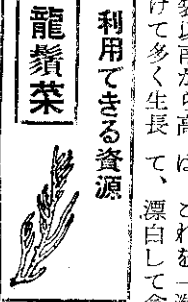 以前から高
けて多く生長
は、これを一
て、漂白して食
利用できる資源
龍鬚菜